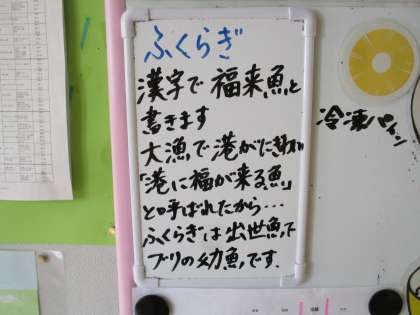 ふくらぎ
漢字で福来魚と
書きます
大漁で港がにぎわい
「港に福が来る魚」
と呼ばれたから・・・
ふくらぎは出世魚で
ブリの幼魚です.
冷凍パイン